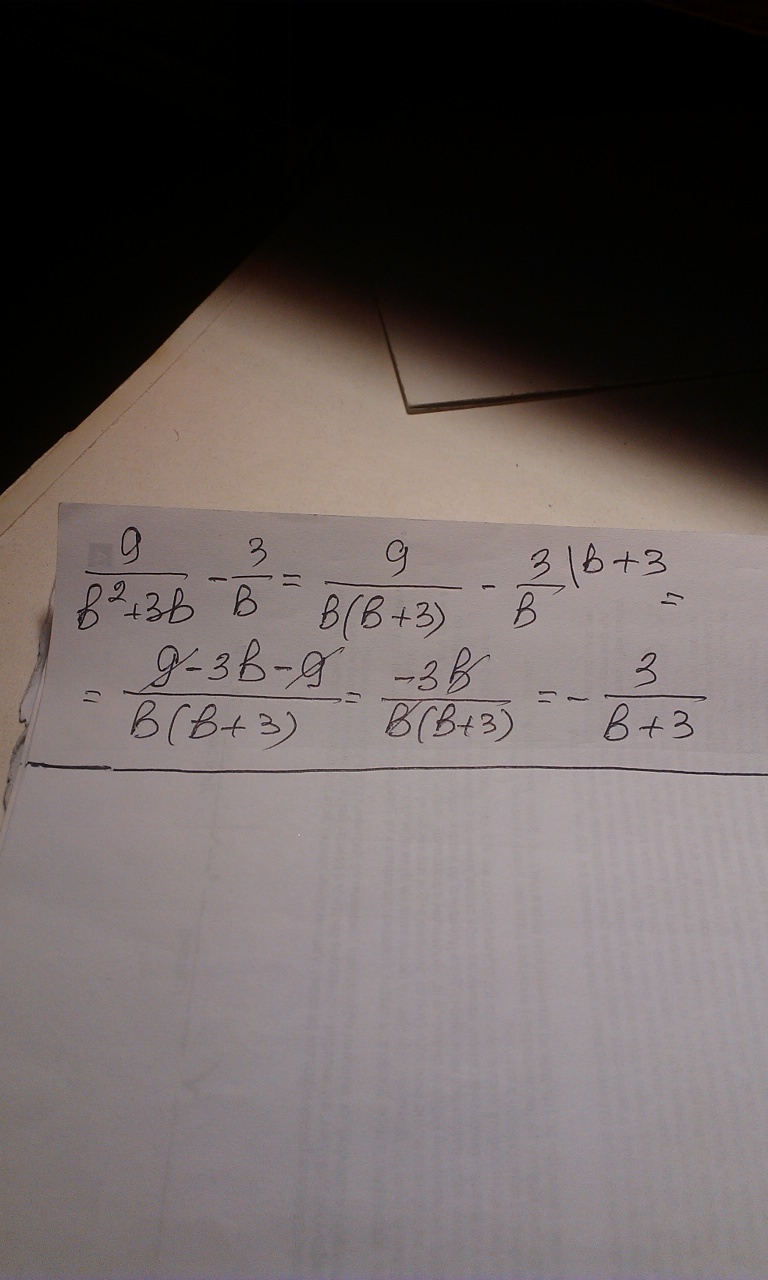 9/(b²+3b) - 3/b = 9/(b(b+3)) - 3/b \b+3 =
= (9-3b-9)/(b(b+3)) = -3b/(b(b+3)) = - 3/(b+3)